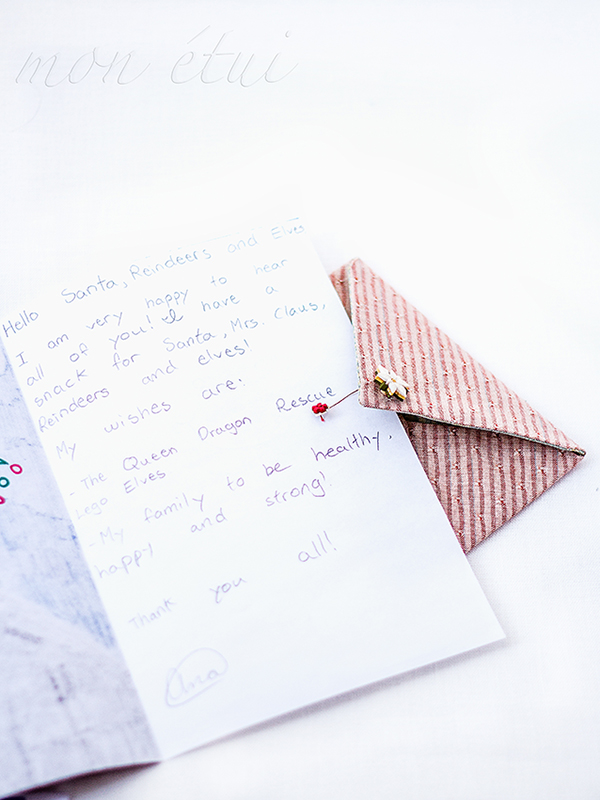 mon étui
Hello Santa, Reindeers and Elves
I am very happy to hear
all of you! I have a
snack for Santa, Mrs. Claus,
Reindeers and elves!
My wishes are:
- The Queen Dragon Rescue
Lego Elves
- My family to be healthy,
happy and strong!
Thank you all!